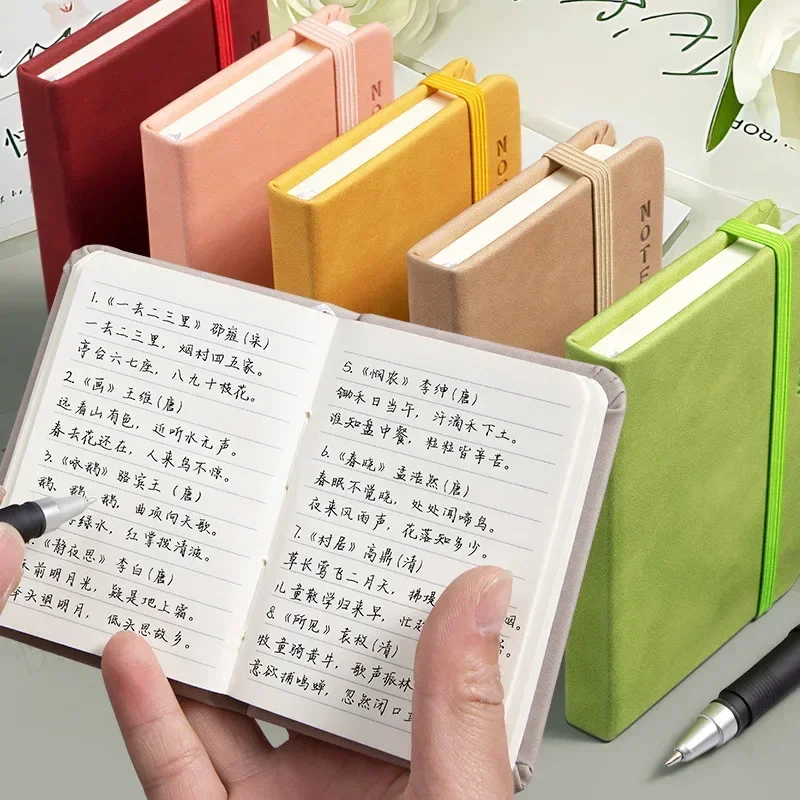 NO
NO
NOTE
1.《一去二三里》邵雍(宋)
一去二三里，烟村四五家。
亭台六七座，八九十枝花。
2.《画》王维(唐)
远看山有色，近听水无声。
春去花还在，人来鸟不惊。
3.《咏鹅》骆宾王(唐)
鹅，鹅，鹅，曲项向天歌。
绿水，红掌拨清波。
《静夜思》李白(唐)
前明月光，疑是地上霜。
头望明月，低头思故乡。
5.《悯农》李绅(唐)
锄禾日当午，汗滴禾下土。
谁知盘中餐，粒粒皆辛苦。
6.《春晓》孟浩然(唐)
春眠不觉晓，处处闻啼鸟。
夜来风雨声，花落知多少。
7.《村居》高鼎(清)
草长莺飞二月天，拂堤 烟。
儿童散学归来早，忙趁
8.《所见》袁枚(清)
牧童骑黄牛，歌声振林
意欲捕鸣蝉，忽然闭口立